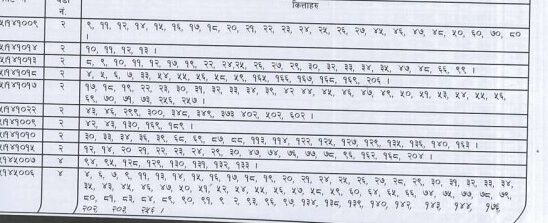 वडा कित्ताहरु
नं.
५१४१००९ २ ९, ११, १२, १४, १५, १६, १७, १८, २०, २१, २२, २३, २४, २५, २६, २७, ४५, ४६, ४७, ४८, ५०, ६०, ७०, ८०
।
५१४१०१४ २ १०, ११, १२, १३ ।
५१४१०१३ २ ८, ९, १०, ११, १२, १७, १९, २२, २४,२५, २६, २७, २९, ३०, ३२, ३३, ३४, ३५, ४७, ४८, ६६, ९९ ।
५१४१०१८ २ ४, ५, ६, ७, ३३, ५४, ५५, ५६, ५८, ५९, १६५, १६६, १६७, १६८, १६९, २०६ ।
५१४१०१७ २ १७, १८, १९, २२, २३, ३०, ३१, ३२, ३३, ३४, ३९, ४२ ४४, ४५, ४६, ४७, ४९, ५०, ५१, ५३, ५४, ५५, ५६,
६९, ७०, ७१, ७३, २५६, २५७ ।
५१४१०२२ २ ४३, ४६, २९९, ३००, ३४८, ३४९, ३७३ ४०२, ५०२, ६०२ ।
५१४१००९ २ ४२, ४३, १३०, १६९, १८९ ।
५१४१०१० २ ३०, ३३, ३४, ३६, ३९, ६८, ६९, ८७, ८८, ११३, ११४, १२२, १२५, १२७, १२९, १३५, १३६, १४०, १६३ ।
५१४१०१५ २ १२, १४, २०, २१, २२, २३, २४, २९, ३०, ४७, ७४, ७६, ७७, ७८, ९६, १६२, १६८, २०४ ।
५१४५००७ ४ ९४, ९५, १२८, १२९, १३०, १३१, १३२, १३३ ।
५१४५००६ ४ ४, ६, ७, ९, ११, १३, १४, १५, १६, १७, १८, १९, २०, २१, २४, २५, २६, २७, २८, २९, ३०, ३१, ३२, ३३, ३४,
३५, ४३, ४५, ४६, ४७, ५०, ५१, ५२, ५४, ५५, ५६, ५७, ५८, ५९, ६०, ६४, ६५, ६६, ७४, ७५, ७७, ७८, ७९,
८०, ८१, ८३, ८४, ८९, ९०, ९१, ९२, ९३, ९६, ९७, १३४, १३८, १३९, १४०, १४२, १४३, १४४, १७६
२०२ २०३ २५६ ।